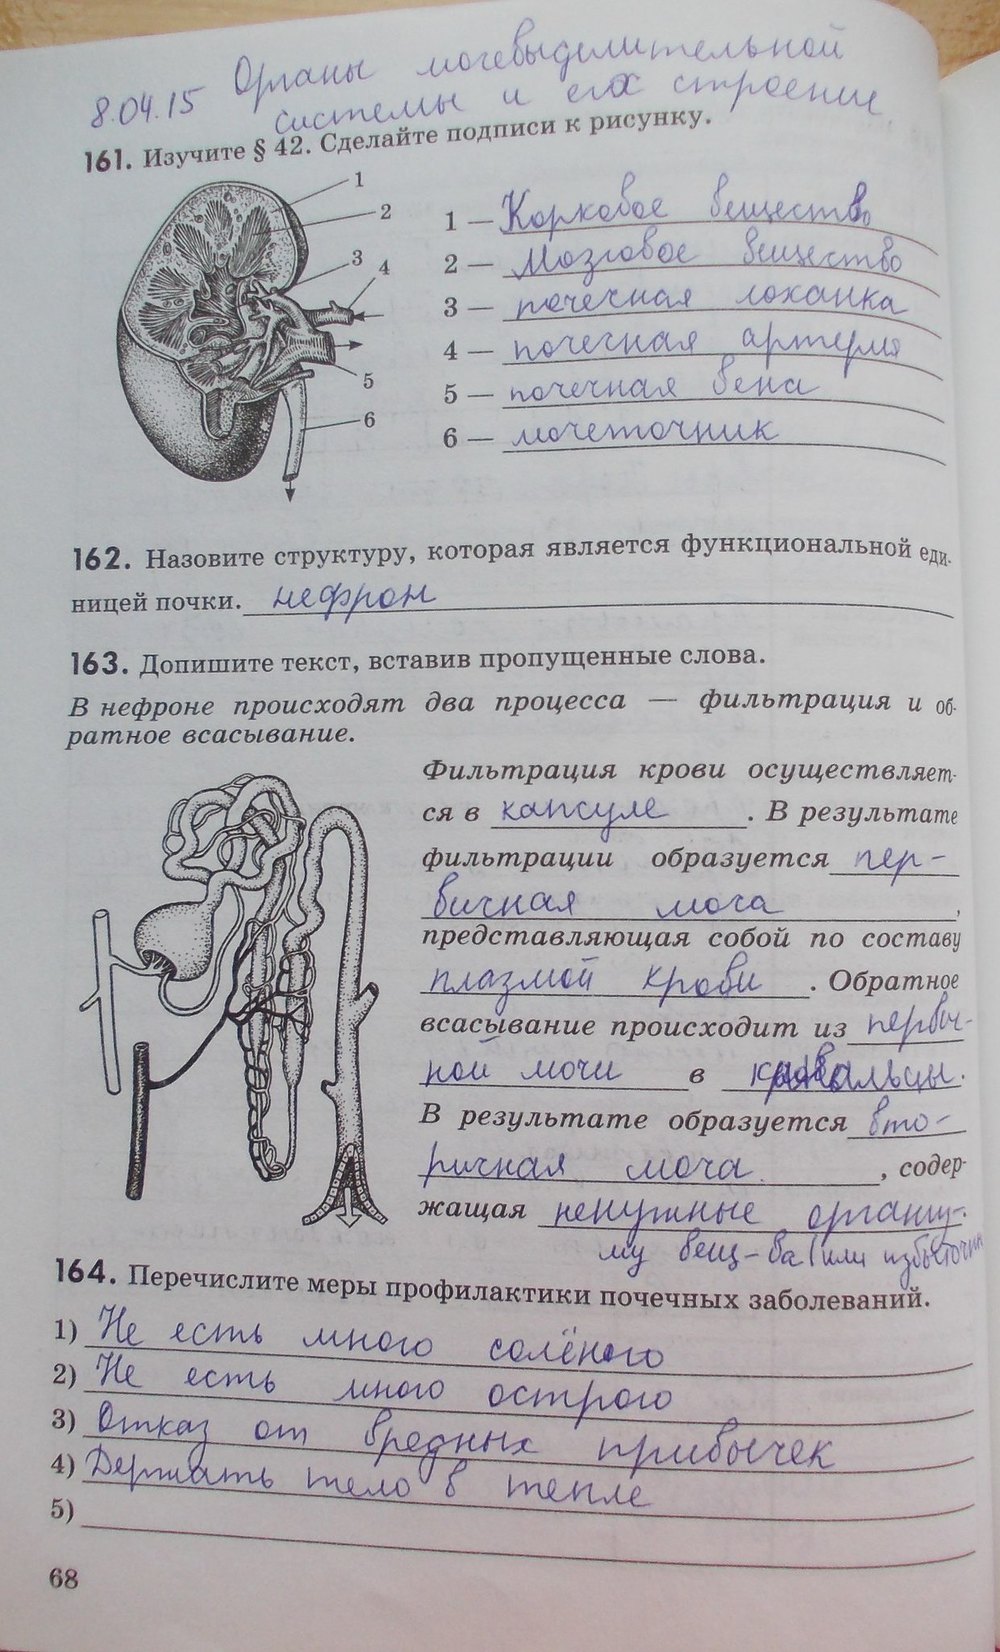 8.04.15 Органы мочевыделительной
системы и его строение
161. Изучите § 42. Сделайте подписи к рисунку.
1
2
3
4
5
6
1 — Корковое вещество
2 — Мозговое вещество
3 — почечная лоханка
4 — почечная артерия
5 — почечная вена
6 — мочеточник
162. Назовите структуру, которая является функциональной еди-
ницей почки. нефрон
163. Допишите текст, вставив пропущенные слова.
В нефроне происходят два процесса — фильтрация и об-
ратное всасывание.
Фильтрация крови осуществляет-
ся в капсуле . В результате
фильтрации образуется пер-
вичная моча ,
представляющая собой по составу
плазмой крови . Обратное
всасывание происходит из первич-
ной мочи в
В результате образуется вто-
ричная моча , содер-
жащая ненужные
вещ-ва (или избыточн
164. Перечислите меры профилактики почечных заболеваний.
1) Не есть много солёного
2) Не есть много острого
3) Отказ от вредных привычек
4) Держать тело в тепле
5)
68